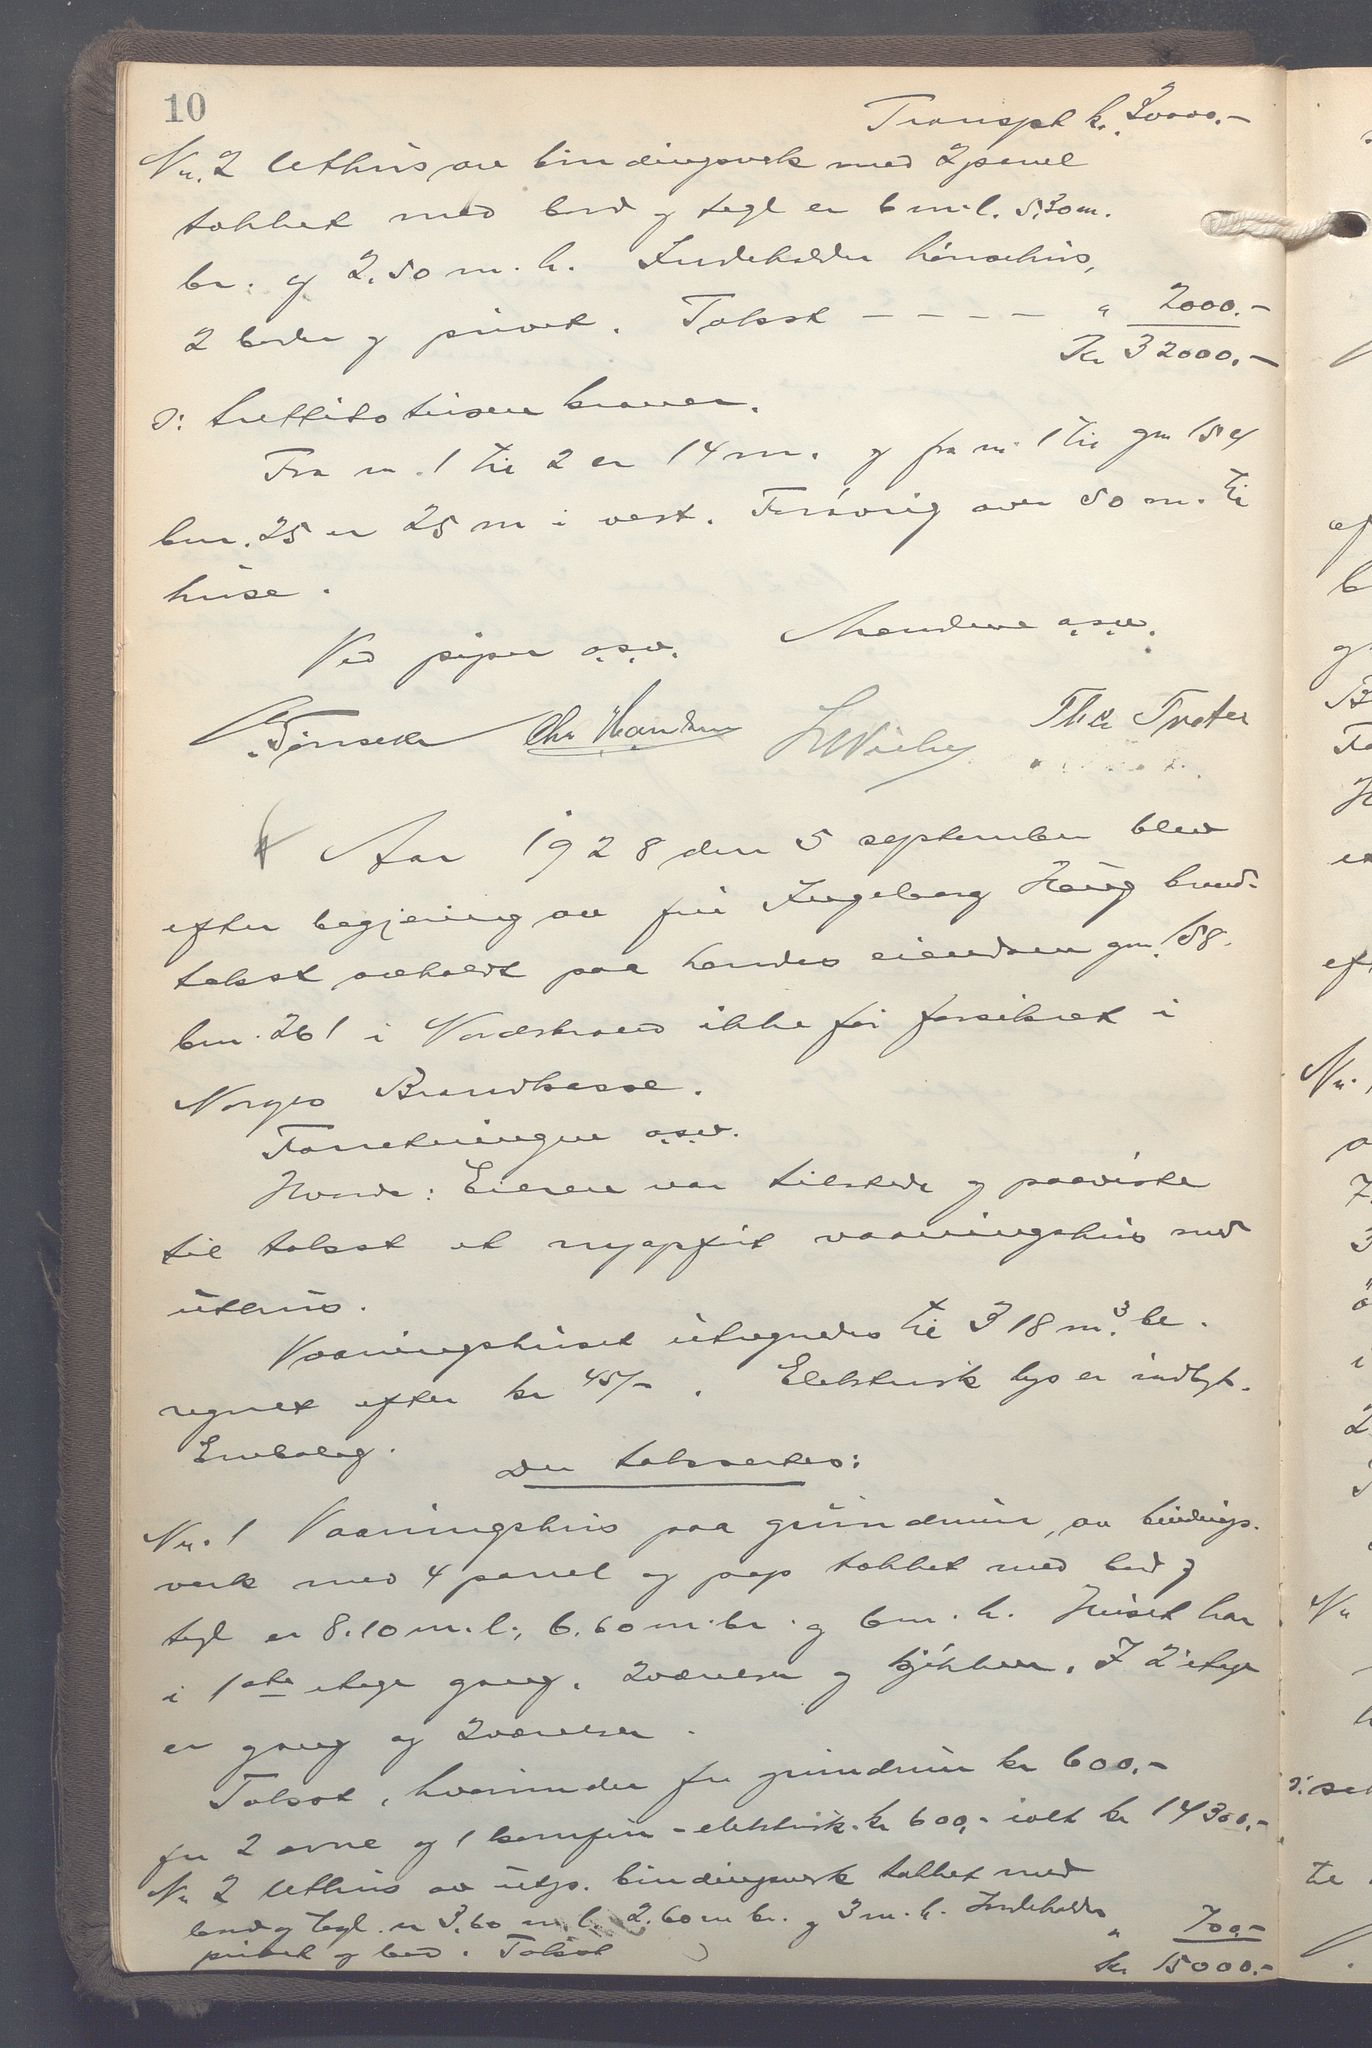 10
Transpt kr. 30000.-
Nr. 2 Uthus av bindingsverk med 2 panel
takket med bord og tegl er 6 m. l. 5.30 m.
br. og 2.50 m. h. Indeholder hönsehus,
2 boder og privet. Takst - - - - " 2000.-
Kr 32000.-
ɔ: trettito tusen kroner.
Fra nr. 1 til 2 er 14 m. og fra nr. 1 til gnr 154
bnr. 25 er 25 m i vest. Forövrig over 50 m. til
huse.
Ved piper o.s.v. Mendene o.s.v.
Tönsek Chr Handen Ths Tveter
Aar 1928 den 5 september blev
efter begjæring av frú Ingeborg Haug brand-
takst avholdt paa hendes eiendom gnr. 158.
bnr. 261 i Nordstrand ikke för forsikret i
Norges Brandkasse.
Forretningen o.s.v.
Hvorda: Eieren var tilstede og paaviste
til takst et nyopfört vaaningshus med
uthus.
Vaaningshuset utregnedes til 318 m³. be-
regnet efter kr 45/-. Elektrisk lys er indlagt.
Der taksertes:
Nr. 1 Vaaningshus paa grundmur, av bindings-
verk med 4 panel og pap takket med bord og
tegl er 8.10 m. l., 6.60 m. br. og 6 m. h. Huset har
i 1ste etage gang, 2 værelser og kjökken. I 2' etage
er gang og 2 værelser.
Takst, hvorunder for grundmur kr 600.-
for 2 ovne og 1 komfur - elektrisk. kr 600,- ialt kr 14300.-
Nr 2 Uthus av utp. bindingsverk takket med
bord og tegl er 3.60 m l. 2.60 m br. og 3 m. h. Indeholder
privet og bod. Takst " 700.-
kr 15000.-